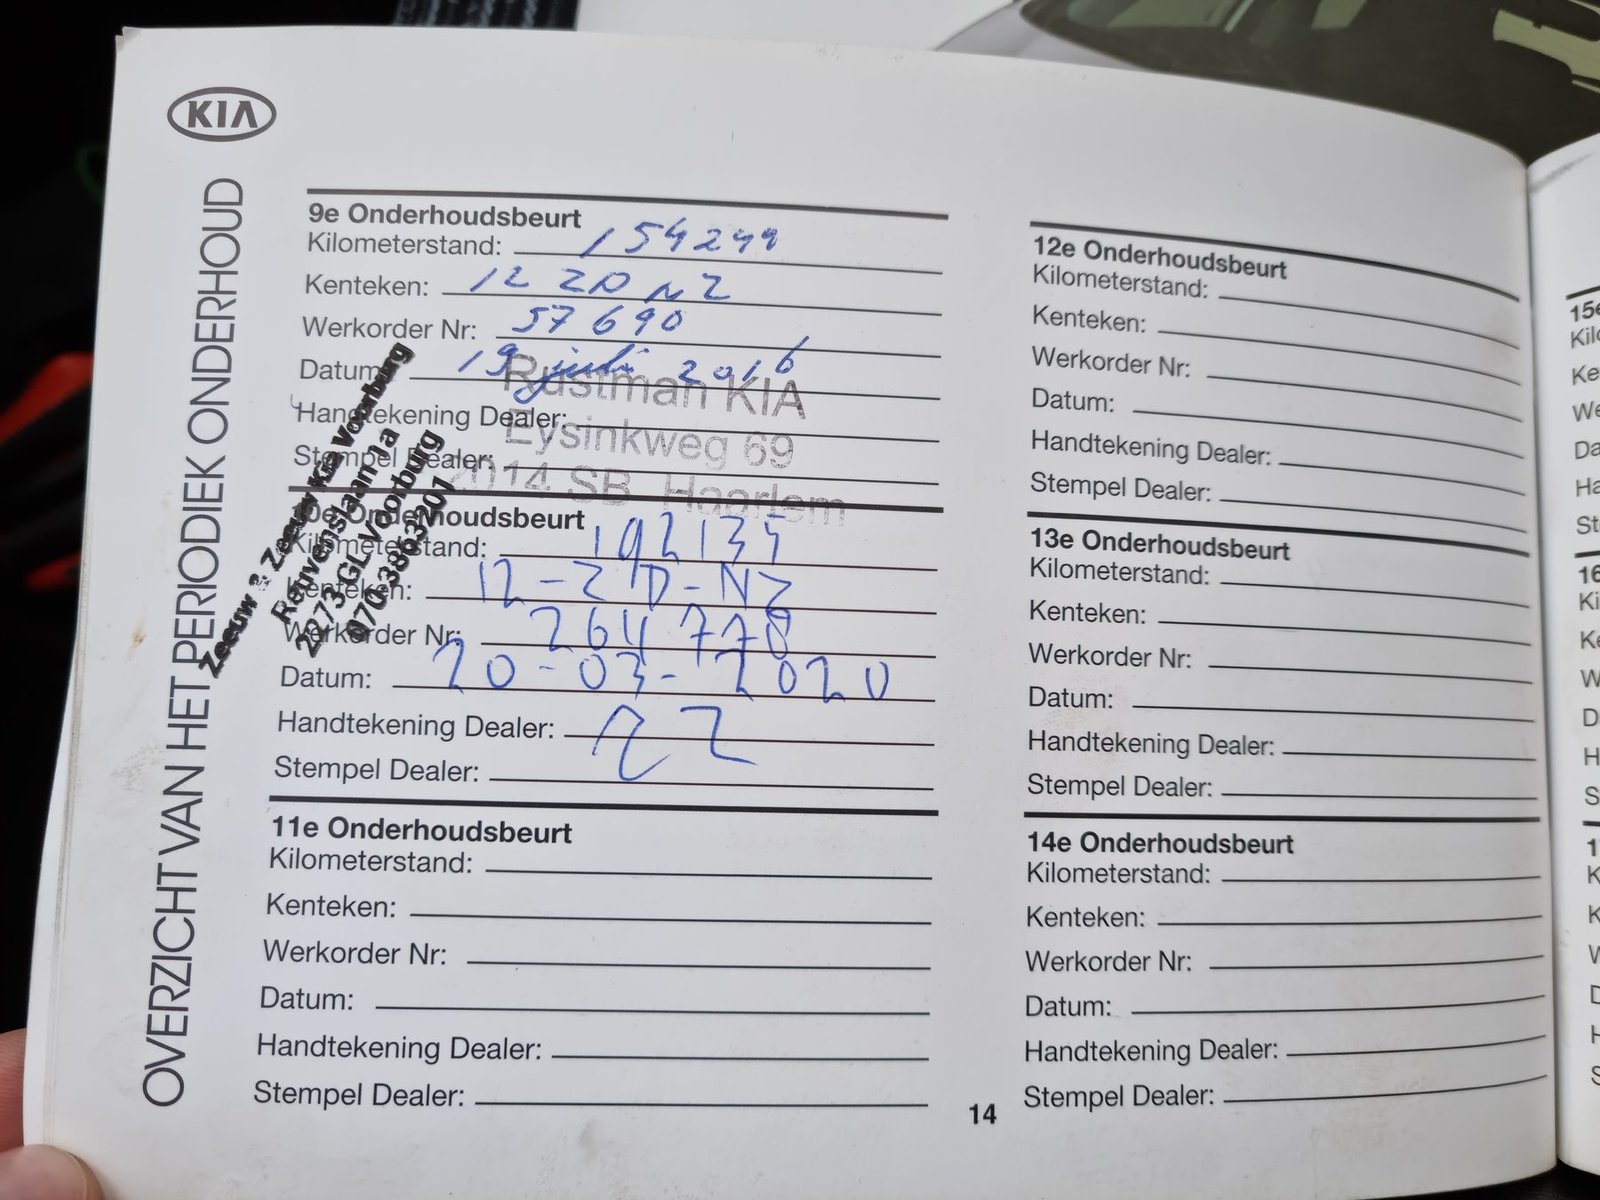 KIA
OVERZICHT VAN HET PERIODIEK ONDERHOUD
9e Onderhoudsbeurt
Kilometerstand: 154299
Kenteken: 12 ZD NZ
Werkorder Nr: 57690
Datum: 19 juli 2016
Handtekening Dealer:
Stempel Dealer:
Rustman KIA
Eysinkweg 69
2014 SB Haarlem
Zeeuw & Zeeuw Kia Voorburg
Reuvenslaan 1a
2273 GL Voorburg
070-3863207
10e Onderhoudsbeurt
Kilometerstand: 192135
Kenteken: 12-ZD-NZ
Werkorder Nr: 264778
Datum: 20-03-2020
Handtekening Dealer:
Stempel Dealer:
11e Onderhoudsbeurt
Kilometerstand:
Kenteken:
Werkorder Nr:
Datum:
Handtekening Dealer:
Stempel Dealer:
12e Onderhoudsbeurt
Kilometerstand:
Kenteken:
Werkorder Nr:
Datum:
Handtekening Dealer:
Stempel Dealer:
13e Onderhoudsbeurt
Kilometerstand:
Kenteken:
Werkorder Nr:
Datum:
Handtekening Dealer:
Stempel Dealer:
14e Onderhoudsbeurt
Kilometerstand:
Kenteken:
Werkorder Nr:
Datum:
Handtekening Dealer:
Stempel Dealer:
14